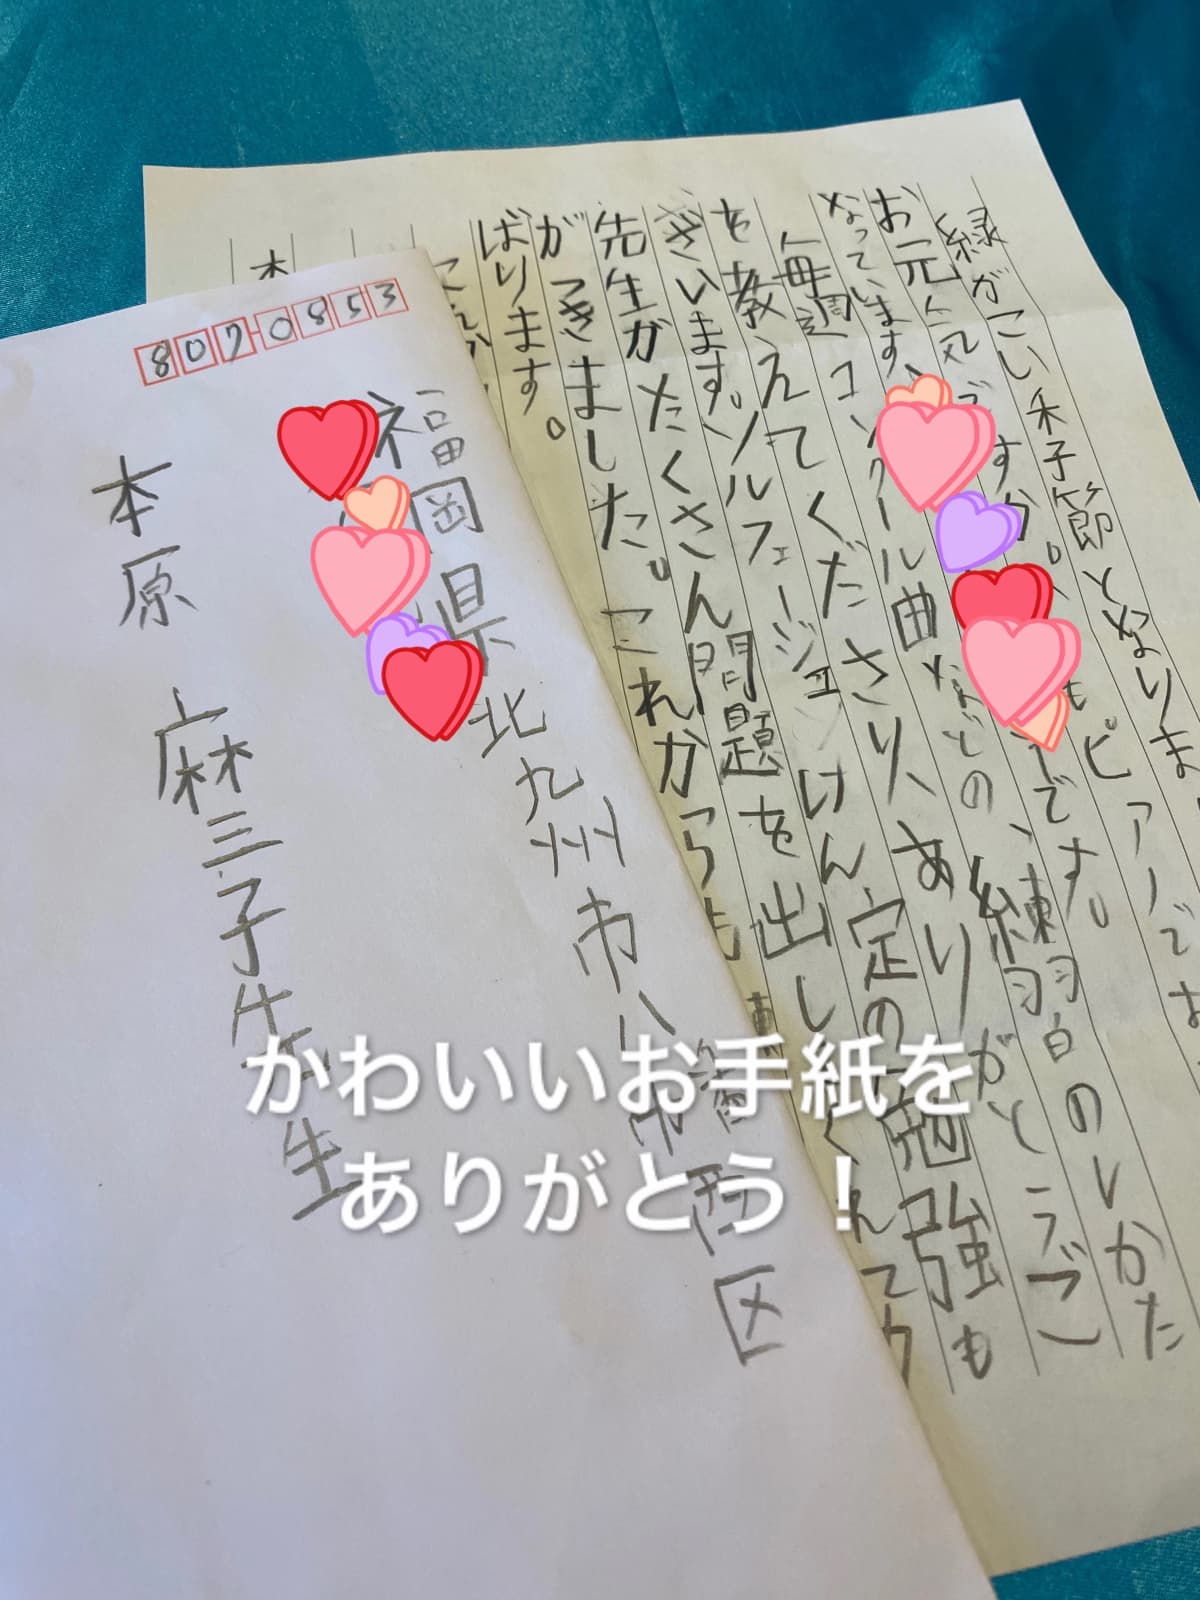 かわいいお手紙を
ありがとう！
807-0853
福岡県北九州市八幡西区
本原 麻三子先生
緑がこい季節となりま
お元気ですか。
もピアノでお
なっています。
です。
毎週コンクール曲などの、練習のしかた
を教えてくださり、ありがとうご
ざいます。ソルフェージュけん定の勉強も
先生がたくさん問題を出してくれて力
がつきました。これからも
ばります。
本